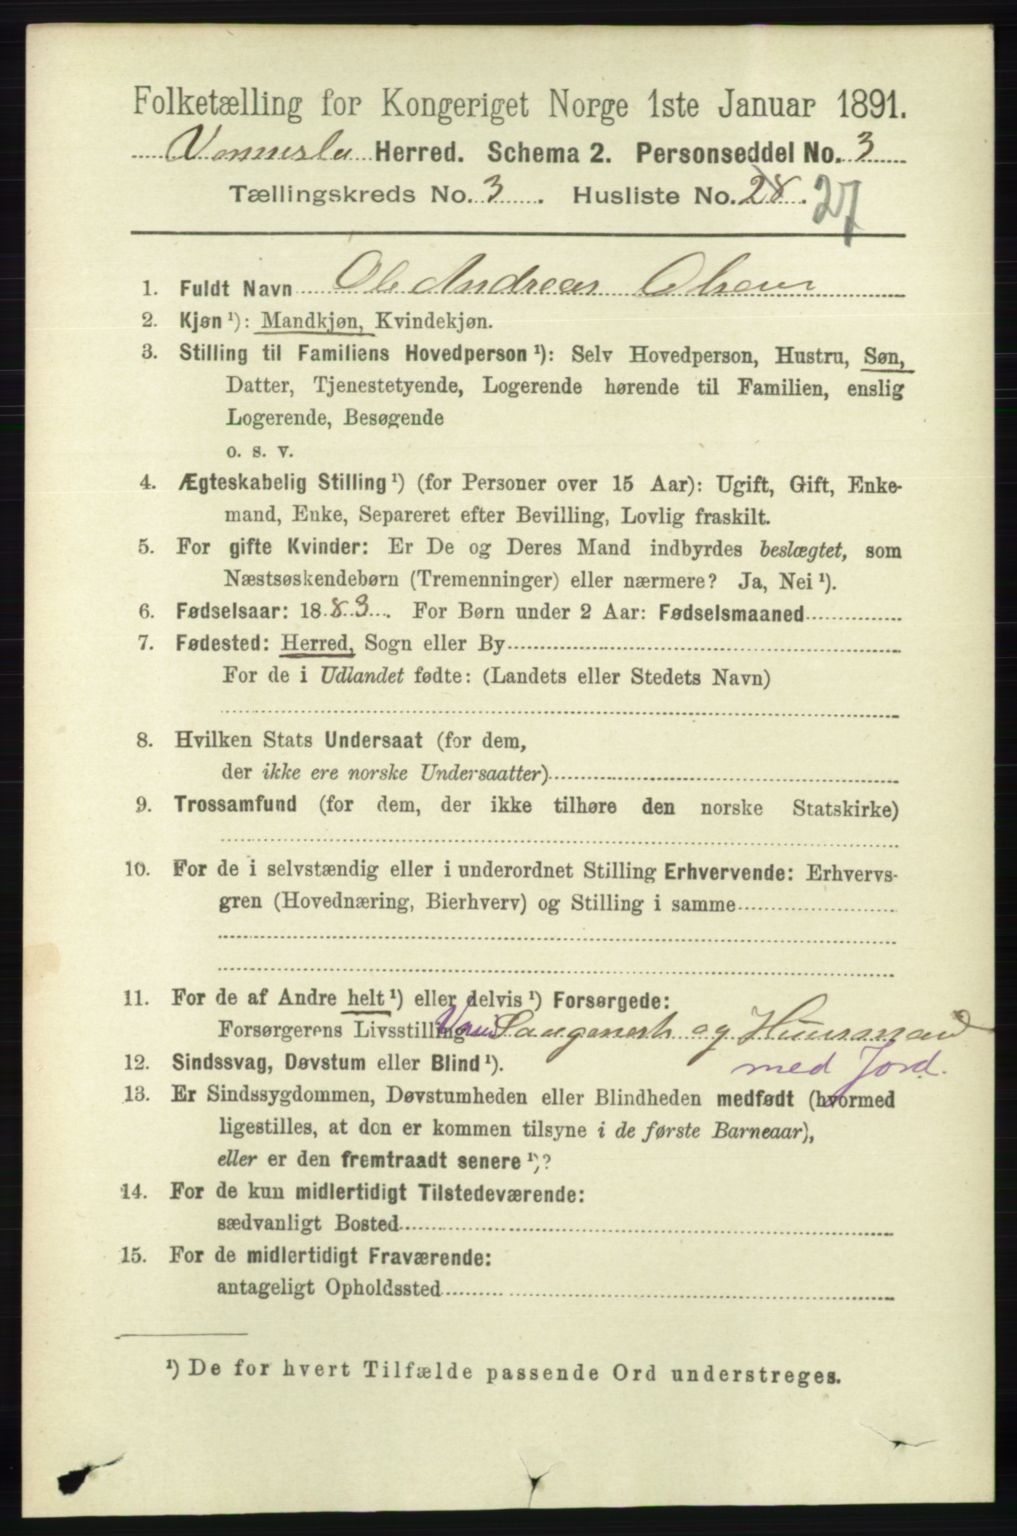 Folketælling for Kongeriget Norge 1ste Januar 1891.
Vennesla Herred. Schema 2. Personseddel No. 3
Tællingskreds No. 3. Husliste No. 28. 27
1. Fuldt Navn Ole Andreas Olsen
2. Kjøn ¹): Mandkjøn, Kvindekjøn.
3. Stilling til Familiens Hovedperson ¹): Selv Hovedperson, Hustru, Søn,
Datter, Tjenestetyende, Logerende hørende til Familien, enslig
Logerende, Besøgende
o. s. v.
4. Ægteskabelig Stilling ¹) (for Personer over 15 Aar): Ugift, Gift, Enke-
mand, Enke, Separeret efter Bevilling, Lovlig fraskilt.
5. For gifte Kvinder: Er De og Deres Mand indbyrdes beslægtet, som
Næstsøskendebørn (Tremenninger) eller nærmere? Ja, Nei ¹).
6. Fødselsaar: 1883. For Børn under 2 Aar: Fødselsmaaned
7. Fødested: Herred, Sogn eller By
For de i Udlandet fødte: (Landets eller Stedets Navn)
8. Hvilken Stats Undersaat (for dem,
der ikke ere norske Undersaatter)
9. Trossamfund (for dem, der ikke tilhøre den norske Statskirke)
10. For de i selvstændig eller i underordnet Stilling Erhvervende: Erhvervs-
gren (Hovednæring, Bierhverv) og Stilling i samme
11. For de af Andre helt ¹) eller delvis ¹) Forsørgede:
Forsørgerens Livsstilling og Huusmand
12. Sindssvag, Døvstum eller Blind ¹). med Jord.
13. Er Sindssygdommen, Døvstumheden eller Blindheden medfødt (hvormed
ligestilles, at den er kommen tilsyne i de første Barneaar),
eller er den fremtraadt senere ¹)?
14. For de kun midlertidigt Tilstedeværende:
sædvanligt Bosted
15. For de midlertidigt Fraværende:
antageligt Opholdssted
¹) De for hvert Tilfælde passende Ord understreges.